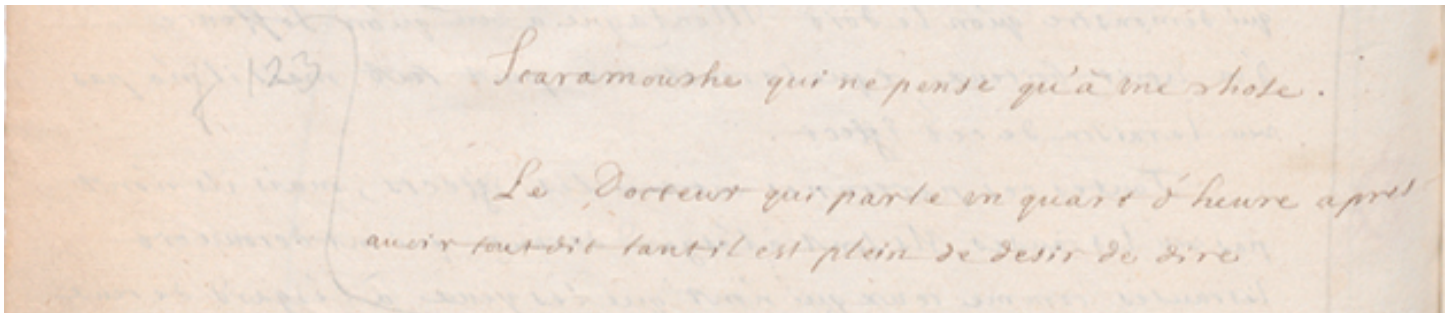 123
Scaramouche qui ne pense qu'a une chose.
Le Docteur qui parle un quart d'heure apres
avoir tout dit tant il est plein de desir de dire